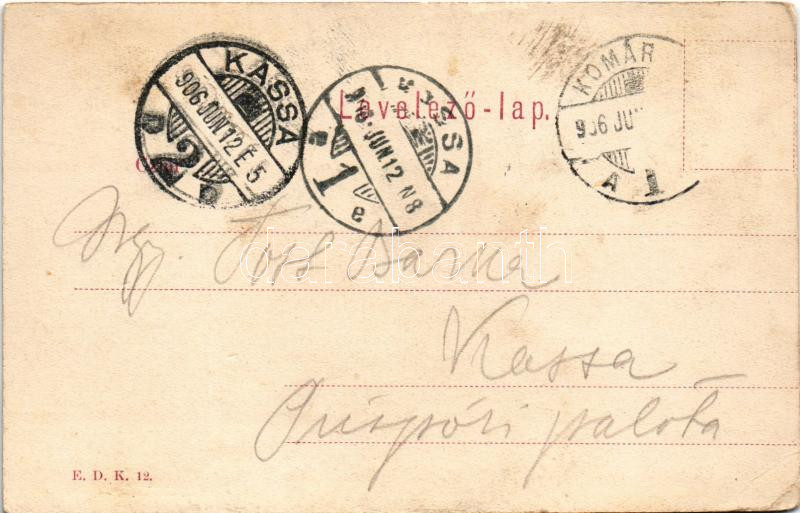 KASSA
906 JUN 12 E 5
2
KASSA
JUN 12 N 8
1
KOMÁR
906 JU
A 1
Levelező-lap.
Czim
Ngs. Tost Barna
Kassa
Püspöki palota
E. D. K. 12.
darabanth